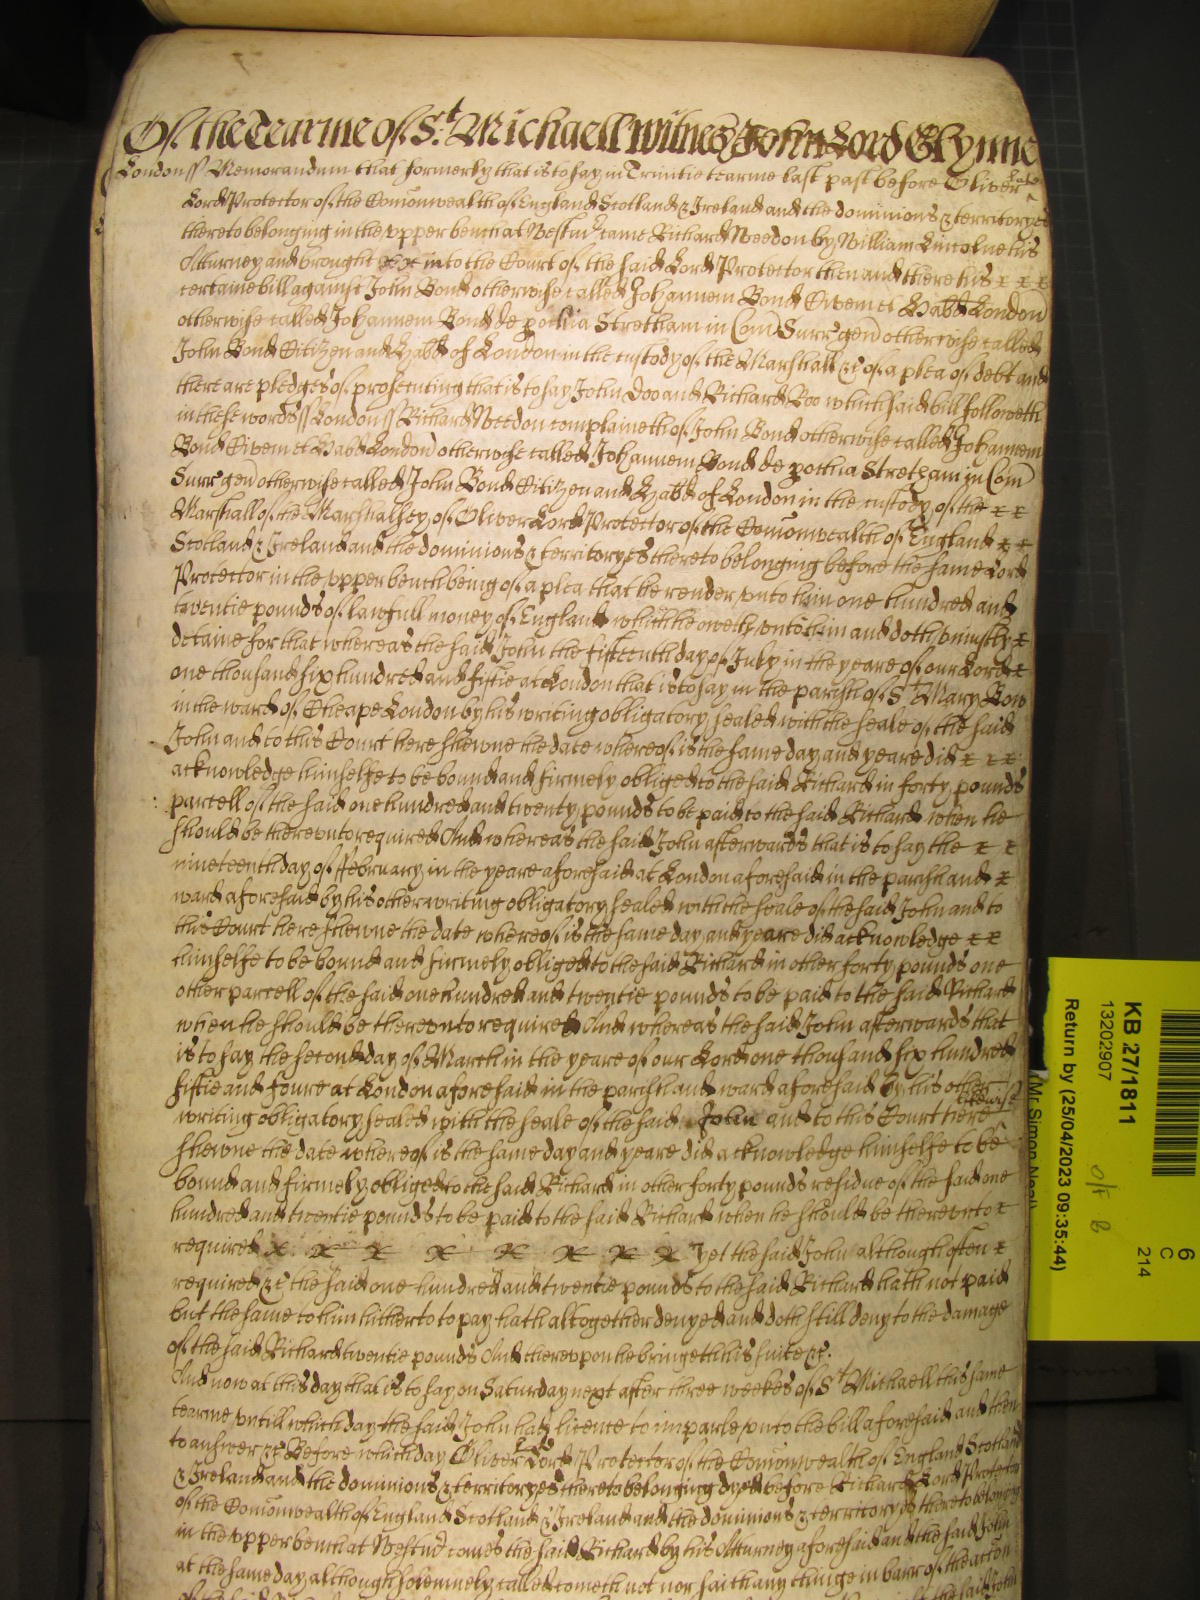 Of the Tearme of St. Michaell Witnes John Lord Glynne
London ss Memorandum that formerly that is to say in Trinitie tearme last past before Oliver late
Lord Protector of the Comonwealth of England Scotland & Ireland and the dominions & territoryes
thereto belonging in the upper bench at Westmr came Richard Weedon by William Lincolne his
Atturney and brought x x into the Court of the said Lord Protector then and there his x x x
certaine bill against John Bond otherwise called Johannem Bond Civem et Habd London
otherwise called Johannem Bond de Stretham in Com Surr gen otherwise called
John Bond Citizen and Habd of London in the custody of the Marshall &c of a plea of debt and
there are pledges of prosecuting that is to say John Doo and Richard Roo which said bill followeth
in these words ss London ss Richard Weedon complaineth of John Bond otherwise called Johannem
Bond Civem et Habd London otherwise called Johannem Bond de Stretham in Com
Surr gen otherwise called John Bond Citizen and Habd of London in the custody of the x x
Marshall of the Marshalsey of Oliver Lord Protector of the Comonwealth of England x x
Scotland & Ireland and the dominions & territoryes thereto belonging before the same Lord
Protector in the upper bench being of a plea that he render unto him one hundred and
twentie pounds of lawfull money of England which he oweth unto him and doth uniustly x
detaine for that whereas the said John the fifteenth day of July in the yeare of our Lord x
one thousand six hundred and fiftie at London that is to say in the parish of St Mary Bow
in the ward of Cheape London by his writing obligatory sealed with the seale of the said
John and to this Court here shewne the date whereof is the same day and yeare did x x x
acknowledge himselfe to be bound and firmely obliged to the said Richard in forty pounds
parcell of the said one hundred and twenty pounds to be paid to the said Richard when he
should be thereunto required And whereas the said John afterwards that is to say the x x
nineteenth day of ffebruary in the yeare aforesaid at London aforesaid in the parish and x
ward aforesaid by his other writing obligatory sealed with the seale of the said John and to
this Court here shewne the date whereof is the same day and yeare did acknowledge x x
himselfe to be bound and firmely obliged to the said Richard in other forty pounds one
other parcell of the said one hundred and twentie pounds to be paid to the said Richard
when he should be thereunto required And whereas the said John afterwards that
is to say the second day of March in the yeare of our Lord one thousand six hundred
fiftie and foure at London aforesaid in the parish and ward aforesaid by his other
writing obligatory sealed with the seale of the said John and to this Court here likewise
shewne the date whereof is the same day and yeare did acknowledge himselfe to be
bound and firmely obliged to the said Richard in other forty pounds residue of the said one
hundred and twentie pounds to be paid to the said Richard when he should be thereunto x
required x x x x x x x x yet the said John although often x
required &c the said one hundred and twentie pounds to the said Richard hath not paid
but the same to him hitherto to pay hath altogether denyed and doth still deny to the damage
of the said Richard twentie pounds And thereupon he bringeth his suite &c.
And now at this day that is to say on Saturday next after three weekes of St Michaell this same
tearme untill which day the said John hath licence to imparle unto the bill aforesaid and then
to answer &c Before which day Oliver late Lord Protector of the Comonwealth of England Scotland
& Ireland and the dominions & territoryes thereto belonging dyed before Richard Lord Protector
of the Comonwealth of England Scotland & Ireland and the dominions & territoryes thereto belonging
in the upper bench at Westmr comes the said Richard by his Atturney aforesaid and the said John
at the same day although solemnely called cometh not nor saith any thinge in barr of the action
KB 27/1811
13202907
Return by (25/04/2023 09:35:44)
(Mr Simon Neal)
6
C
214